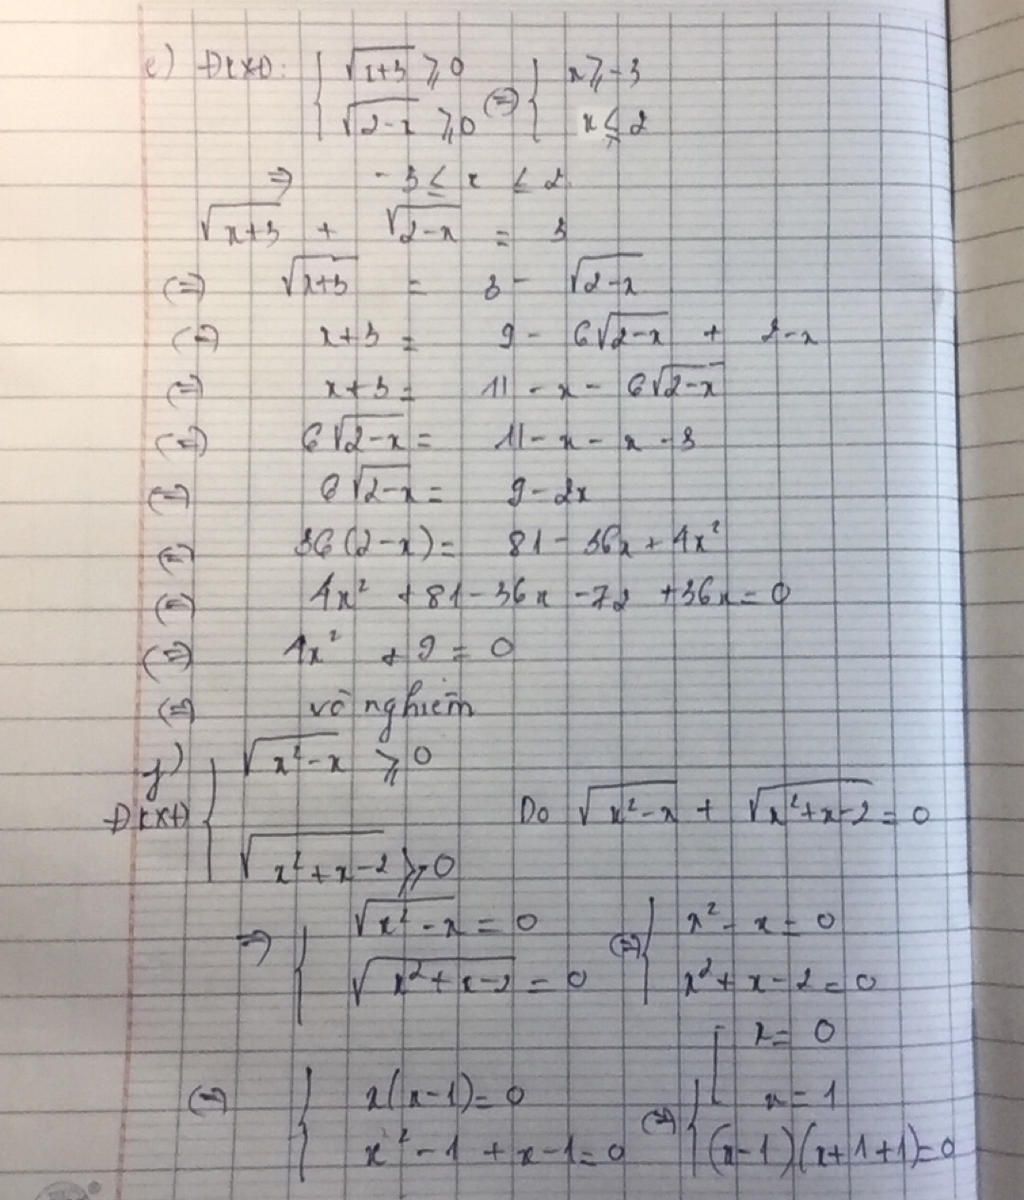 e) ĐKXĐ: { √(x+3) ⩾ 0 (=) { x ⩾ -3
√(2-x) ⩾ 0 x ≤ 2
=> -3 ≤ x ≤ 2
√(x+3) + √(2-x) = 3
(=) √(x+3) = 3 - √(2-x)
(=) x+3 = 9 - 6√(2-x) + 2-x
(=) x+3 = 11 - x - 6√(2-x)
(=) 6√(2-x) = 11 - x - x - 3
(=) 6√(2-x) = 9 - 2x
(=) 36(2-x) = 81 - 36x + 4x²
(=) 4x² + 81 - 36x - 72 + 36x = 0
(=) 4x² + 9 = 0
(=) vô nghiêm
f) { √(x²-x) ⩾ 0
ĐKXĐ Do √(x²-x) + √(x²+x-2) = 0
√(x²+x-2) ⩾ 0
=> { √(x²-x) = 0 (=) { x² - x = 0
√(x²+x-2) = 0 x² + x - 2 = 0
(=) { x(x-1) = 0 (=) { [ x = 0
x = 1
x² - 1 + x - 1 = 0 (x-1)(x+1+1) = 0